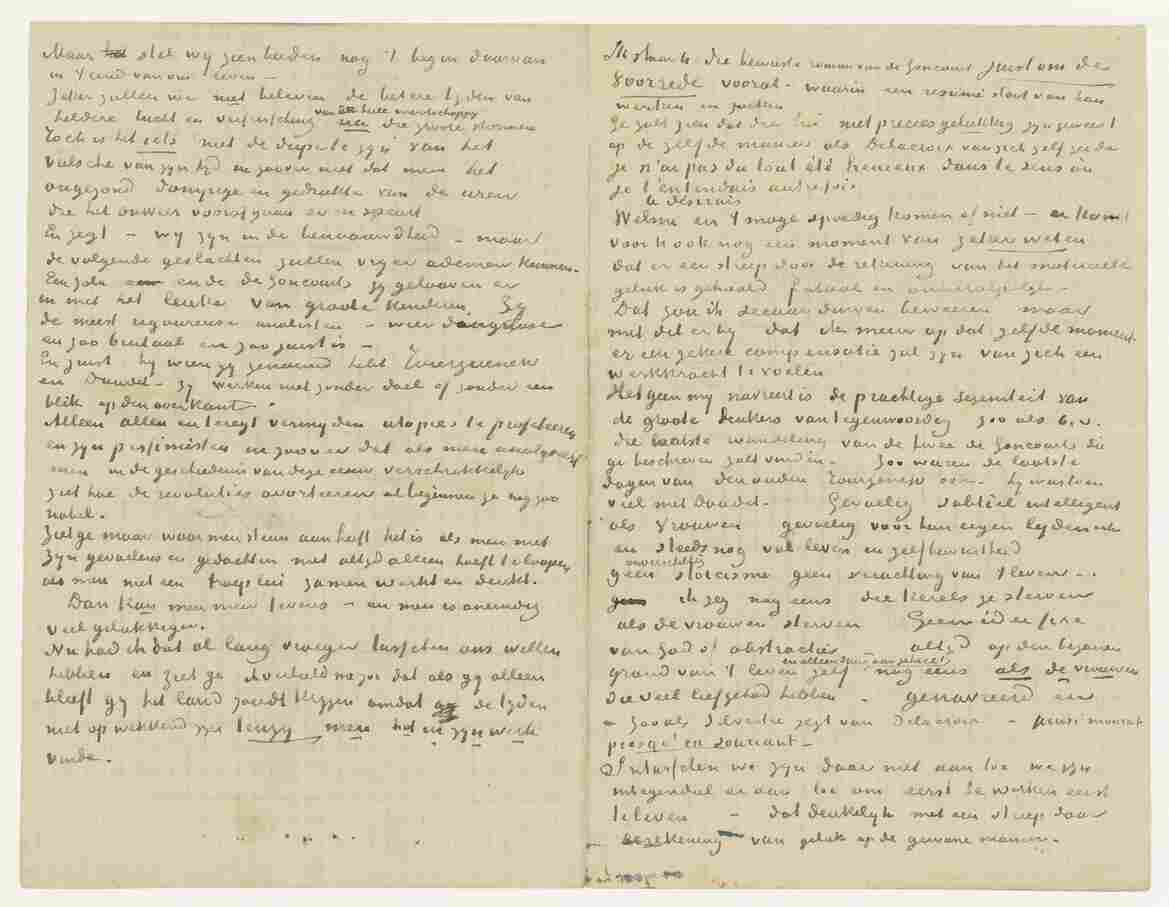 Maar stel wij zien heden nog 't begin daarvan
in 't eind van ons leven –
Zeker zullen we niet beleven de betere tijden van
heldere lucht en verfrissching van de heele maatschappij na die groote stormen
Toch is het iets niet de dupe te zijn van het
valsche van zijn tijd in zoover niet dat men het
ongezond dompige en gedrukte van de uren
die het onweer voorafgaan er in speurt
En zegt – wij zijn in de benaauwdheid – maar
de volgende geslachten zullen vrijer ademen kunnen.
Een Zola en de de Goncourts zij gelooven er
in met het  van groote kinderen. Zij
de meest rigoureuse analisten – wier diagnose
en zoo brutaal en zoo juist is –
En juist hij wien gij genoemd hebt Tourgueneff
en Daudet – zij werken niet zonder doel of zonder een
blik op den overkant.
Alleen allen en teregt vermijden utopies te profeteeren
en zijn pessimisten in zoover dat als men analyseert
men in de geschiedenis van deze eeuw verschrikkelijk
ziet hoe de revoluties avorteeren al beginnen ze nog zoo
nobel.
Ziet ge maar waar men steun aan heeft het is als men niet
zijn gevoelens en gedachten met altijd alleen heeft te loopen
als men met een troep lui zamen werkt en denkt.
Dan kan men meer tevens – en men is oneindig
veel gelukkiger.
Nu had ik dat al lang vroeger tusschen ons willen
hebben en ziet ge ik verbeeld me zoo dat als gij alleen
bleeft gij het land zoudt krijgen omdat de tijden
niet opwekkend zijn tenzij men het in zijn werk
vinde.
Ik stuur U die bewuste roman van de Goncourt juist om de
Voorrede vooral – waarin een resumé staat van hun
werken en zoeken
Ge zult zien dat die lui niet precies gelukkig zijn geweest
op de zelfde manier als Delacroix van zich zelf zeide
je n'ai pas du tout été heureux dans le sens où
je l'entendais autrefois
le désirais
Welnu en 't moge spoedig komen of niet – er komt
voor U ook nog een moment van zeker weten
dat er een streep door de rekening van het materieele
geluk is gehaald fataal en onherroepelijk.
Dat zou ik  durven beweeren maar
met dit er bij dat  op dat zelfde moment
er een zekere compensatie zal zijn van zich een
werkkracht te voelen
Hetgeen mij navreert is de prachtige sereniteit van
de groote denkers van tegenwoordig zoo als b.v.
die laatste wandeling van de twee de Goncourts die
ge beschreven zult vinden. Zoo waren de laatste
dagen van den ouden Tourgenieff ook – hij was toen
veel met Daudet. Gevoelig subtiel intelligent
als vrouwen gevoelig voor hun eigen lijden ook
en steeds nog vol leven en zelfbewustheid
geen onverschillig stoicisme geen verachting van 't leven –.
ik zeg nog eens die kerels ze sterven
als de vrouwen sterven Geen idee fixe
van god of abstracties – altijd op den begane
grond van 't leven zelf en alleen daar aan gehecht nog eens als de vrouwen
die veel liefgehad hebben – genavreerd en
– zooals Silvestre zegt van Delacroix – ainsi mourut
presqu'en souriant –
Intusschen we zijn daar niet aan toe we zijn
integendeel er aan toe om eerst te werken eerst
te leven – dat denkelijk met een streep door
de rekening van geluk op de gewone manier.